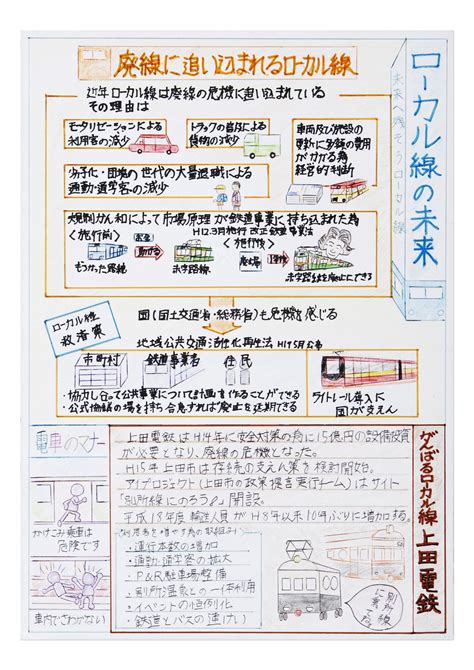 ローカル線の未来
未来へ残そうローカル線
廃線に追い込まれるローカル線
近年ローカル線は廃線の危機に追い込まれている
その理由は
モータリゼーションによる
利用客の減少
トラックの普及による
貨物の減少
車両及び施設の
更新に多額の費用
がかかる為
経営的判断
少子化・団塊の世代の大量退職による
通勤・通学客の減少
規制かん和によって市場原理が鉄道事業に持ち込まれた為
<施行前>
H12.3月施行 改正鉄道事業法
<施行後>
もうかった路線
赤字路線
赤字路線は廃止にできる
ローカル線
救済策
国(国土交通省・総務省)も危機を感じる
地域公共交通活性化再生法 H19 5月公布
市町村
鉄道事業者
住民
・協力し合って公共事業について計画を作ることができる
・公式協議の場を持ち合意すれば廃止を延期できる
ライトレール導入に
国が支えん
電車のマナー
かけこみ乗車は
危険です
車内でさわがない
がんばるローカル線 上田電鉄
上田電鉄はH14年に安全対策の為に15億円の設備投資
が必要となり、廃線の危機となった。
H15年上田市は存続の支えん策を検討開始。
アイプロジェクト(上田市の政策提言実行チーム)はサイト
「別所線にのろう」開設。
平成18年度 輸送人員がH8年以来10年ぶりに増加する。
利用者を増やす為の取り組み
・運行本数の増加
・通勤・通学客の拡大
・P&R駐車場整備
・別所温泉との一体利用
・イベントの恒例化
・鉄道とバスの連けい
別所線に乗ってね